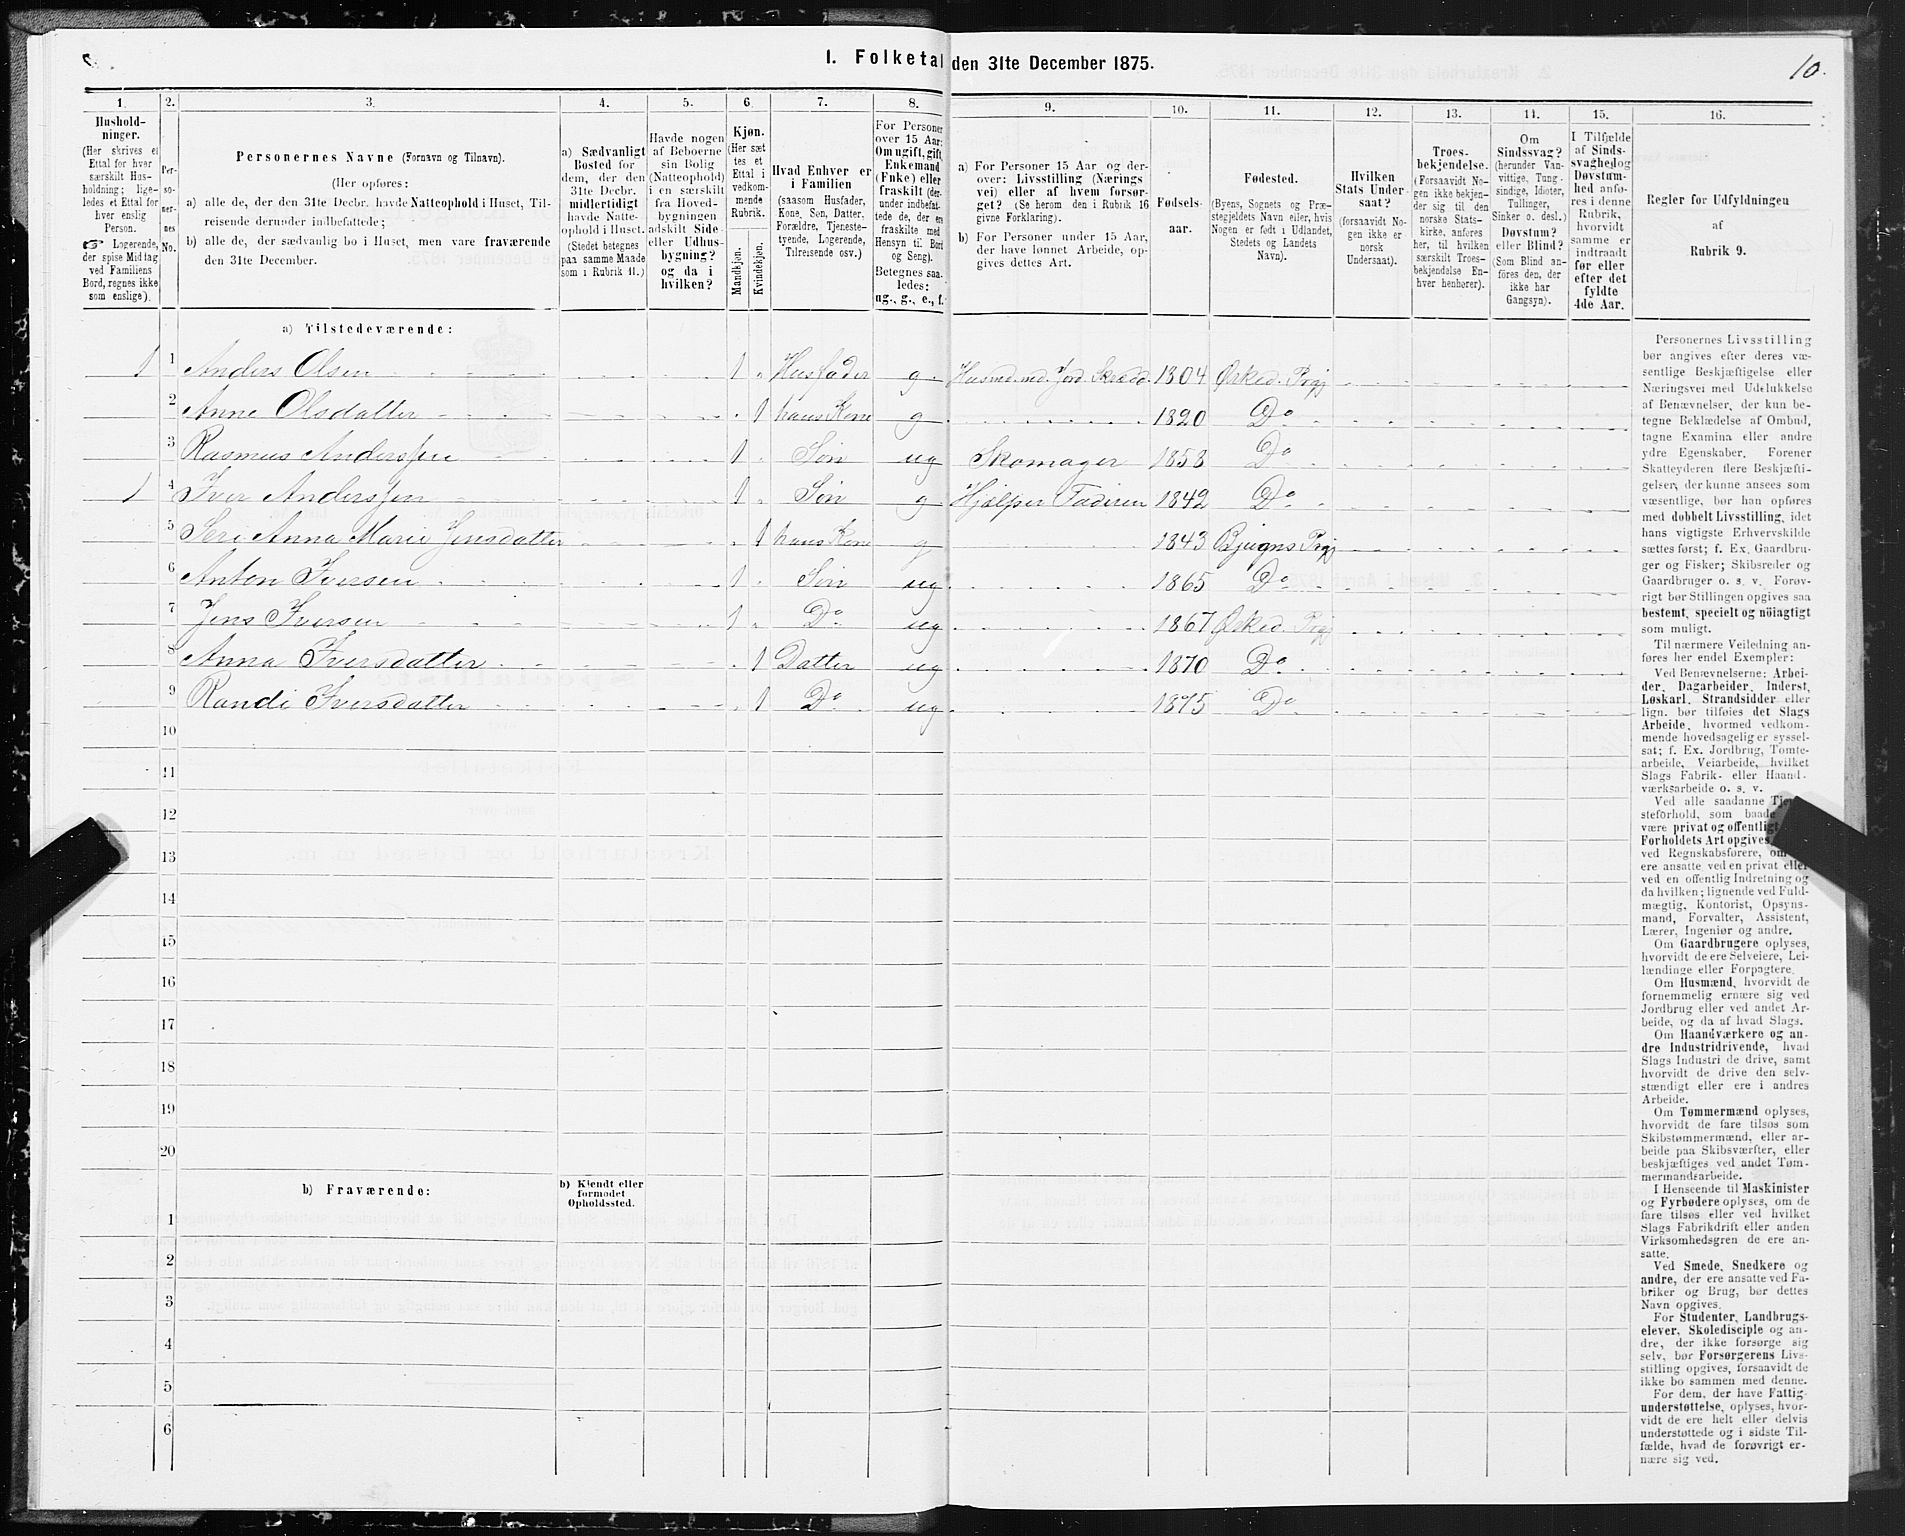 I. Folketal den 31te December 1875.
10.
1.
Hushold-
ninger.
(Her skrives et
Ettal for hver
særskilt Hus-
holdning; lige-
ledes et Ettal for
hver enslig
Person.
Logerende,
der spise Middag
ved Familiens
Bord, regnes ikke
som enslige).
2.
Per-
so-
ner-
nes
No.
3.
Personernes Navne (Fornavn og Tilnavn).
(Her opføres:
a) alle de, der den 31te Decbr. havde Natteophold i Huset, Til-
reisende derunder indbefattede;
b) alle de, der sædvanlig bo i Huset, men vare fraværende
den 31te December.
4.
a) Sædvanligt
Bosted for
dem, der den
31te Decbr.
midlertidigt
havde Natte-
ophold i Huset.
(Stedet betegnes
paa samme Maade
som i Rubrik 11.)
5.
Havde nogen
af Beboerne
sin Bolig
(Natteophold)
i en særskilt
fra Hoved-
bygningen
adskilt Side-
eller Udhus-
bygning?
og da i
hvilken?
6.
Kjøn.
(Her sæt
tes et
Ettal i
vedkom-
mende
Rubrik.
Mandkjøn.
Kvindekjøn.
7.
Hvad Enhver er
i Familien
(saasom Husfader,
Kone, Søn, Datter,
Forældre, Tjeneste-
tyende, Logerende,
Tilreisende osv.)
8.
For Personer
over 15 Aar:
Om ugift, gift,
Enkemand
(Enke) eller
fraskilt (der-
under indbefat-
tede de, der ere
fraskilte med
Hensyn til Bord
og Seng).
Betegnes saa-
ledes:
ug., g., e., f.
9.
a) For Personer 15 Aar og der-
over: Livsstilling (Nærings
vei) eller af hvem forsør-
get? (Se herom den i Rubrik 16
givne Forklaring).
b) For Personer under 15 Aar,
der have lønnet Arbeide, op-
gives dettes Art.
10.
Fødsels-
aar.
11.
Fødested.
(Byens, Sognets og Præ-
stegjeldets Navn eller, hvis
Nogen er født i Udlandet,
Stedets og Landets
Navn).
12.
Hvilken
Stats Under-
saat?
(forsaavidt No-
gen ikke er
norsk
Undersaat).
13.
Troes-
bekjendelse.
(Forsaavidt No-
gen ikke bekjen-
der sig til den
norske Stats-
kirke, anføres
her, til hvilken
særskilt Troes-
bekjendelse En-
hver henhører).
14.
Om
Sindssvag?
(herunder Van-
vittige, Tung-
sindige, Idioter,
Tullinger,
Sinker o. desl.)
Døvstum?
eller Blind?
(Som Blind an-
føres den, der
ikke har
Gangsyn).
15.
I Tilfælde
af Sinds-
svaghed og
Døvstum-
hed anfø-
res i denne
Rubrik,
hvorvidt
samme er
indtraadt
før eller
efter det
fyldte
4de Aar.
16.
Regler for Udfyldningen
af
Rubrik 9.
a) Tilstedeværende:
1 1 Anders Olsen 1 Husfader g Husmd. md. Jord 1804 Ørked. Prgj
2 Anne Olsdatter 1 hans Kone g 1820 Do
3 Rasmus Anderssen 1 Søn ug Skomager 1858 Do
1 4 Iver Anderssen 1 Søn g Hjælper Faderen 1842 Do
5 Seri Anna Marie Jensdatter 1 hans Kone g 1843 Bjugns Prgj
6 Anton Iversen 1 Søn ug 1865 Do
7 Jens Iversen 1 Do ug 1867 Ørked. Prgj
8 Anna Iversdatter 1 Datter ug 1870 Do
9 Randi Iversdatter 1 Do ug 1875 Do
10
11
12
13
14
15
16
17
18
19
20
b) Fraværende:
b) Kjendt eller
formodet
Opholdssted.
1
2
3
4
5
6
Personernes Livsstilling
bør angives efter deres væ-
sentlige Beskjæftigelse eller
Næringsvei med Udelukkelse
af Benævnelser, der kun be-
tegne Beklædelse af Ombud,
tagne Examina eller andre
ydre Egenskaber. Forener
Skatteyderen flere Beskjæfti-
gelser, der kunne ansees som
væsentlige, bør han opføres
med dobbelt Livsstilling, idet
hans vigtigste Erhvervskilde
sættes først; f. Ex. Gaardbru-
ger og Fisker; Skibsreder og
Gaardbruger o. s. v. Forøv-
rigt bør Stillingen opgives saa
bestemt, specielt og nöiagtigt
som muligt.
Til nærmere Veiledning an-
føres her endel Exempler:
Ved Benævnelserne: Arbei-
der, Dagarbeider, Inderst,
Løskarl, Strandsidder eller
lign. bør tilføies det Slags
Arbeide, hvormed vedkom-
mende hovedsagelig er syssel-
sat; f. Ex. Jordbrug, Tomte-
arbeide, Veiarbeide, hvilket
Slags Fabrik- eller Haand-
værksarbeide o. s. v.
Ved alle saadanne
steforhold, som baade
være privat og offentligt
Forholdets Art opgives,
ved Regnskabsførere,
ere ansatte ved en privat eller
ved en offentlig Indretning og
da hvilken; lignende ved Fuld-
mægtig, Kontorist, Opsyns-
mand, Forvalter, Assistent,
Lærer, Ingeniør og andre.
Om Gaardbrugere oplyses,
hvorvidt de ere Selveiere, Lei-
lændinge eller Forpagtere.
Om Husmænd, hvorvidt de
fornemmelig ernære sig ved
Jordbrug eller ved andet Ar-
beide, og da af hvad Slags.
Om Haandværkere og an-
dre Industridrivende, hvad
Slags Industri de drive, samt
hvorvidt de drive den selv-
stændigt eller ere i andres
Arbeide.
Om Tømmermænd oplyses,
hvorvidt de fare tilsøs som
Skibstømmermænd, eller ar-
beide paa Skibsværfter, eller
beskjæftiges ved andet Tøm-
mermandsarbeide.
I Henseende til Maskinister
og Fyrbødere oplyses, om de
fare tilsøs eller ved hvilket
Slags Fabrikdrift eller anden
Virksomhedsgren de ere an-
satte.
Ved Smede, Snedkere og
andre, der ere ansatte ved Fa-
briker og Brug, bør dettes
Navn opgives.
For Studenter, Landbrugs-
elever, Skoledisciple og an-
dre, der ikke forsørge sig
selv, bør Forsørgerens Livs-
stilling opgives, forsaavidt de
ikke bo sammen med denne.
For dem, der have Fattig-
understøttelse, oplyses, hvor-
vidt de ere helt eller delvis
understøttede og i sidste Til-
fælde, hvad de forøvrigt er-
nære sig ved.